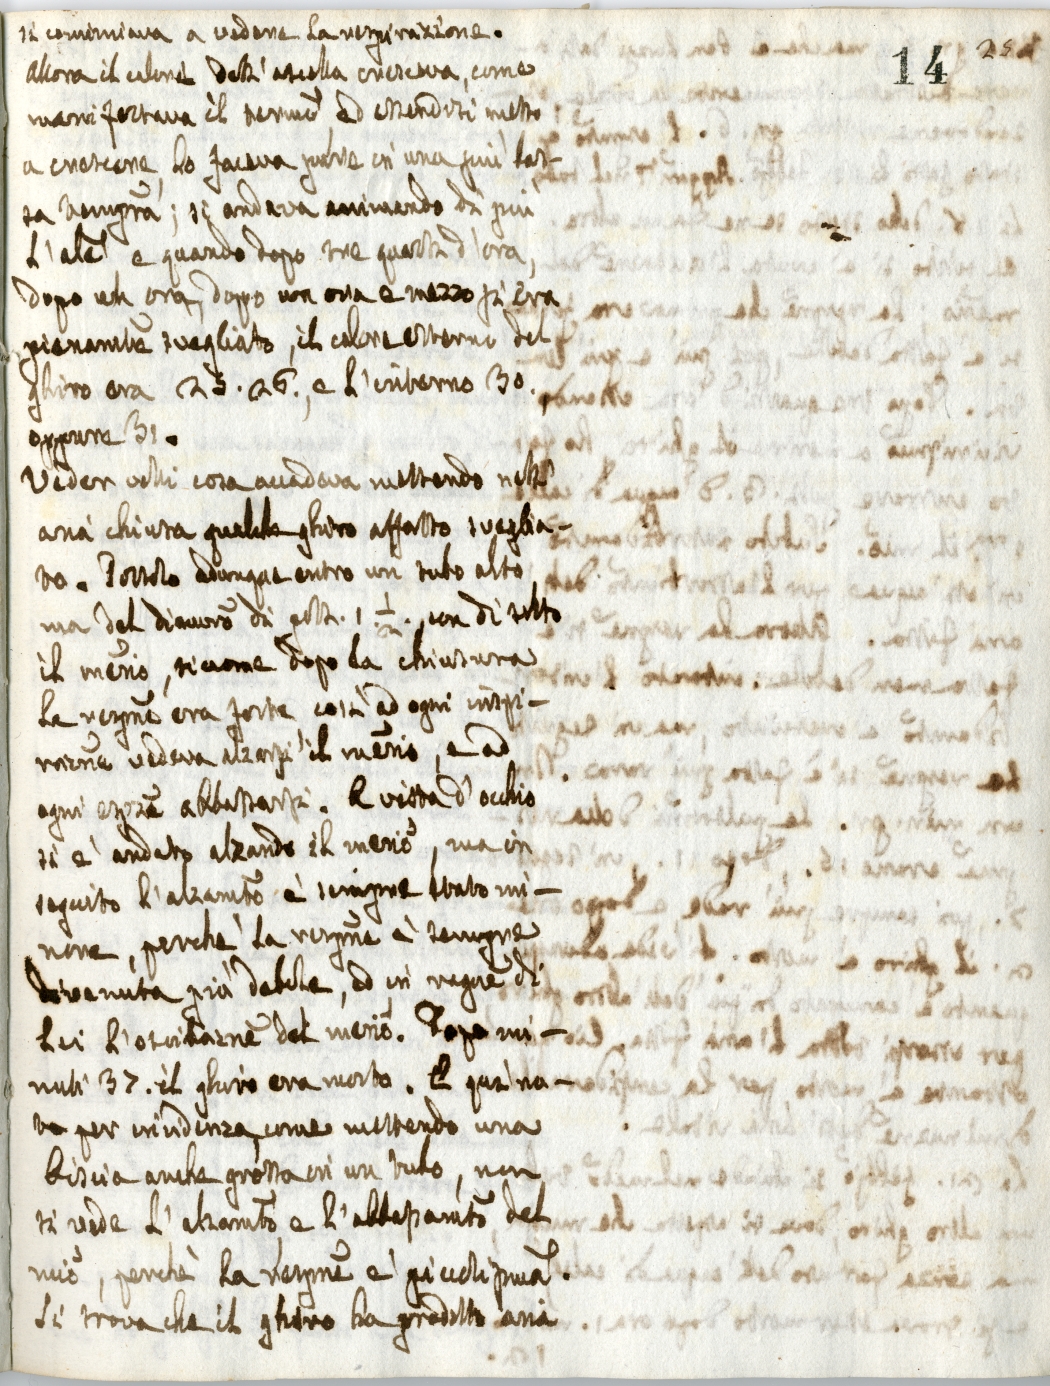 14 25
si cominciava a vedere la respirazione.
Allora il calore dell'ascella cresceva, come
manifestava il termõ, ed essendosi messo
a crescere, lo faceva pure in una più bas-
sa tempra; si andava animando di più
l'alẽ e quando dopo tre quarti d'ora,
dopo un ora, doppo un ora e mezzo si era
pienamte svegliato, il calore esterno del
ghiro era 25. 26., e l'interno 30.
oppure 31.
Veder volli cosa accadeva mettendo nell'
aria chiusa qualche ghiro affatto sveglia-
to. Postolo adunque entro un tubo alto,
ma del diamrõ di poll. 1 1/2., con di sotto
il meriõ, siccome dopo la chiusura
la respnẽ era forte così ad ogni inspi-
razne vedeva alzarsi il merio, e ad
ogni espzẽ abbassarsi. A vista d'occhio
si è andato alzando il meriõ, ma in
seguito l'alzamtõ è sempre stato mi-
nore, perchè la respnẽ è sempre
divenuta più debole, ed in ragnẽ di
lei l'oscillaznẽ del meriõ. Dopo mi-
nuti 37. il ghiro era morto. E qui no-
to per incidenza come mettendo una
biscia anche grossa in un tubo, non
si vede l'alzamtõ, e l'abbassamtõ del
mriõ, perchè la respnẽ è piccolissima.
Si trova che il ghiro ha prodotto aria